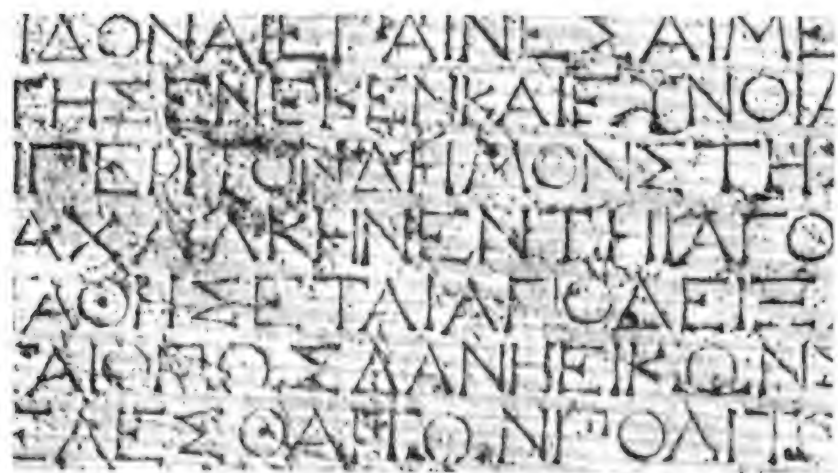 ΙΔΟΝΑΙΕΓΑΙΝΕΣΑΙΜΕ
ΓΗΣΕΝΕΚΕΝΚΑΙΕΥΝΟΙΑ
ΙΠΕΡΙΤΟΝΔΗΜΟΝΣΤΗ
ΑΧΑΛΚΗΝΕΝΤΕΙΑΓΟ
ΑΘΗΣΕΤΑΙΑΓΟΔΕΙΞ
ΑΙΟΠΩΣΔΑΝΗΕΙΚΩΝΕ
ΕΛΕΣΘΑΙΤΩΝΓΟΛΙΤΩ